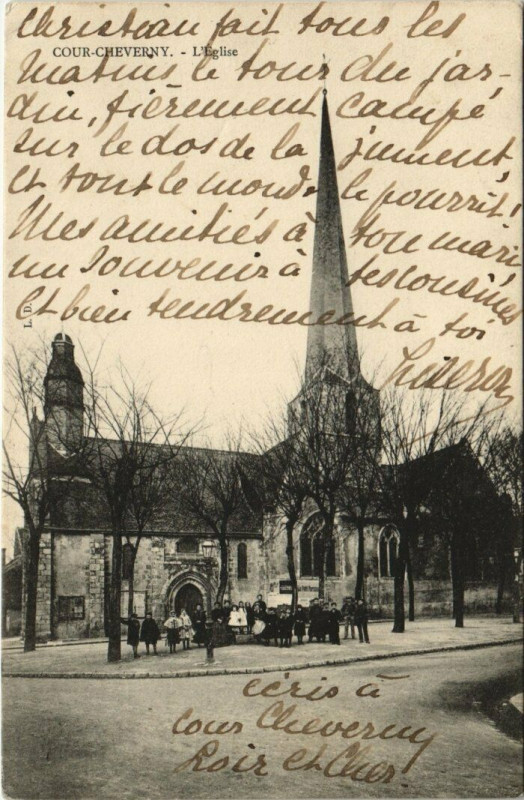 Christian fait tous les
COUR-CHEVERNY. - L'Eglise
Matins le tour du jar-
din, fièrement campé,
sur le dos de la jument,
et tout le monde le pourrit!
Mes amitiés à ton mari
un souvenir à tes cousines
et bien tendrement à toi
L. D.
écris à
cour Cheverny
Loir et Cher.